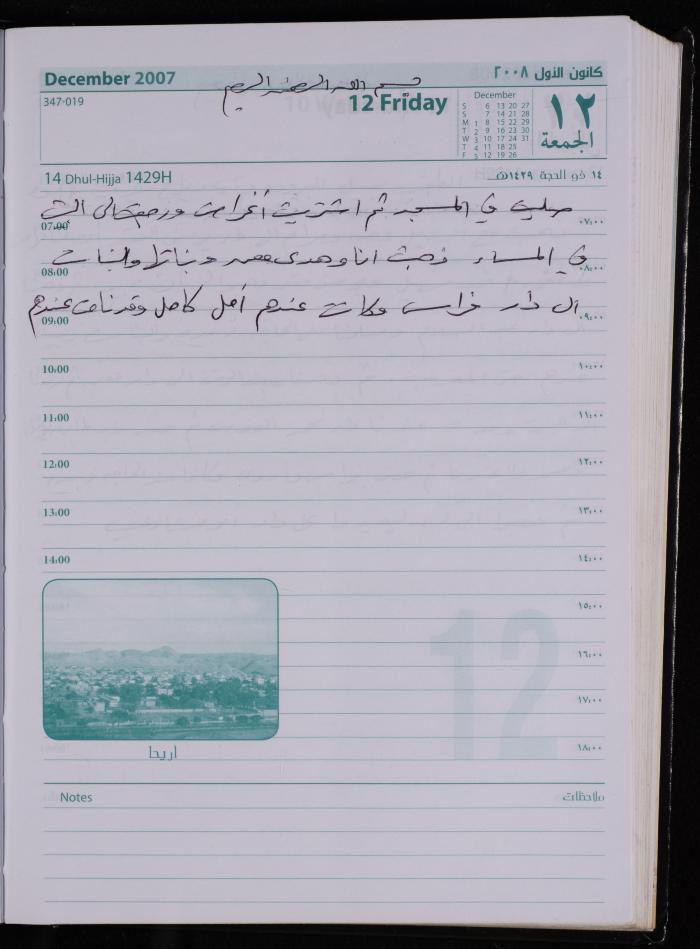 December 2007
كانون الأول ٢٠٠٨
بسم الله الرحمن الرحيم
347-019
12 Friday
١٢
الجمعة
December
S 6 13 20 27
S 7 14 21 28
M 1 8 15 22 29
T 2 9 16 23 30
W 3 10 17 24 31
T 4 11 18 25
F 5 12 19 26
14 Dhul-Hijja 1429H
١٤ ذو الحجة ١٤٢٩هـ
صليت في المسجد ثم اشتريت أغراض ورجعت الى البيت
07:00 ٠٧:٠٠
في المساء ذهبت انا وهدى وبناتها والبنات
08:00 ٠٨:٠٠
الى دار فراس وكانت عندهم أمل كامل وقد نامت عندهم
09:00 ٠٩:٠٠
10:00 ١٠:٠٠
11:00 ١١:٠٠
12:00 ١٢:٠٠
13:00 ١٣:٠٠
14:00 ١٤:٠٠
١٥:٠٠
12
١٦:٠٠
١٧:٠٠
١٨:٠٠
اريحا
Notes ملاحظات